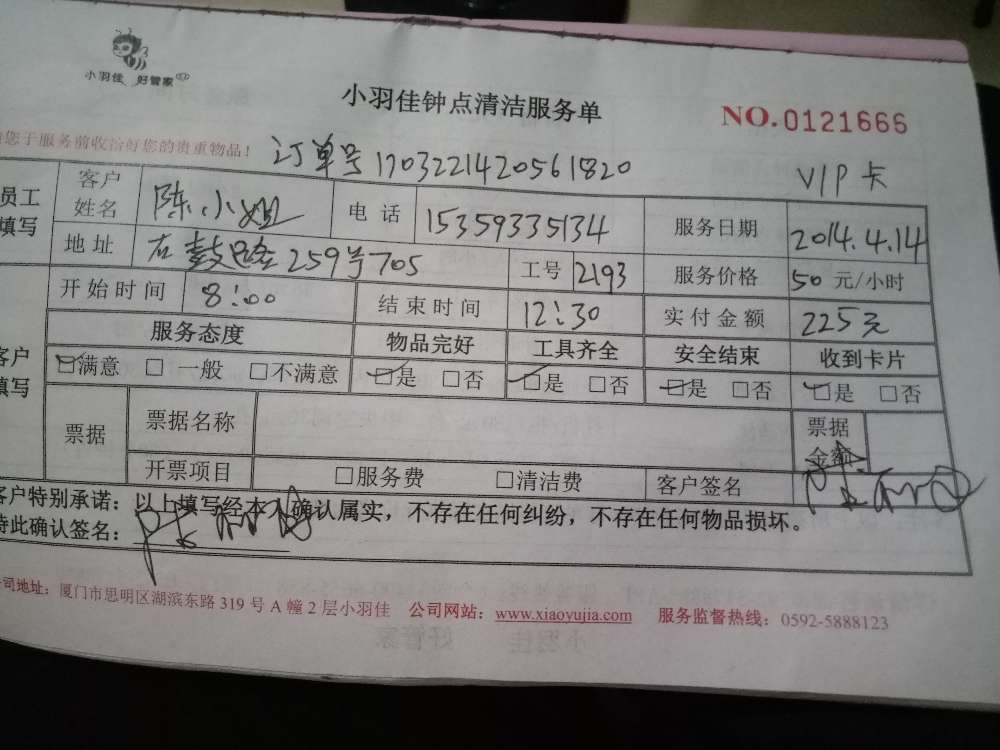 小羽佳 好管家
小羽佳钟点清洁服务单
NO.0121666
您于服务前收洽好您的贵重物品!
订单号1703221420561820
VIP卡
员工填写
客户姓名 陈小姐 电话 15359335134 服务日期 2014.4.14
地址 259号705 工号 2193 服务价格 50 元/小时
开始时间 8:00 结束时间 12:30 实付金额 225元
客户填写
服务态度 物品完好 工具齐全 安全结束 收到卡片
☑满意 □一般 □不满意 ☑是 □否 ☑是 □否 ☑是 □否 ☑是 □否
票据 票据名称 票据金额
开票项目 □服务费 □清洁费 客户签名
客户特别承诺:以上填写经本人确认属实,不存在任何纠纷,不存在任何物品损坏。
特此确认签名:
公司地址:厦门市思明区湖滨东路 319 号 A 幢 2 层小羽佳 公司网站:www.xiaoyujia.com 服务监督热线:0592-5888123